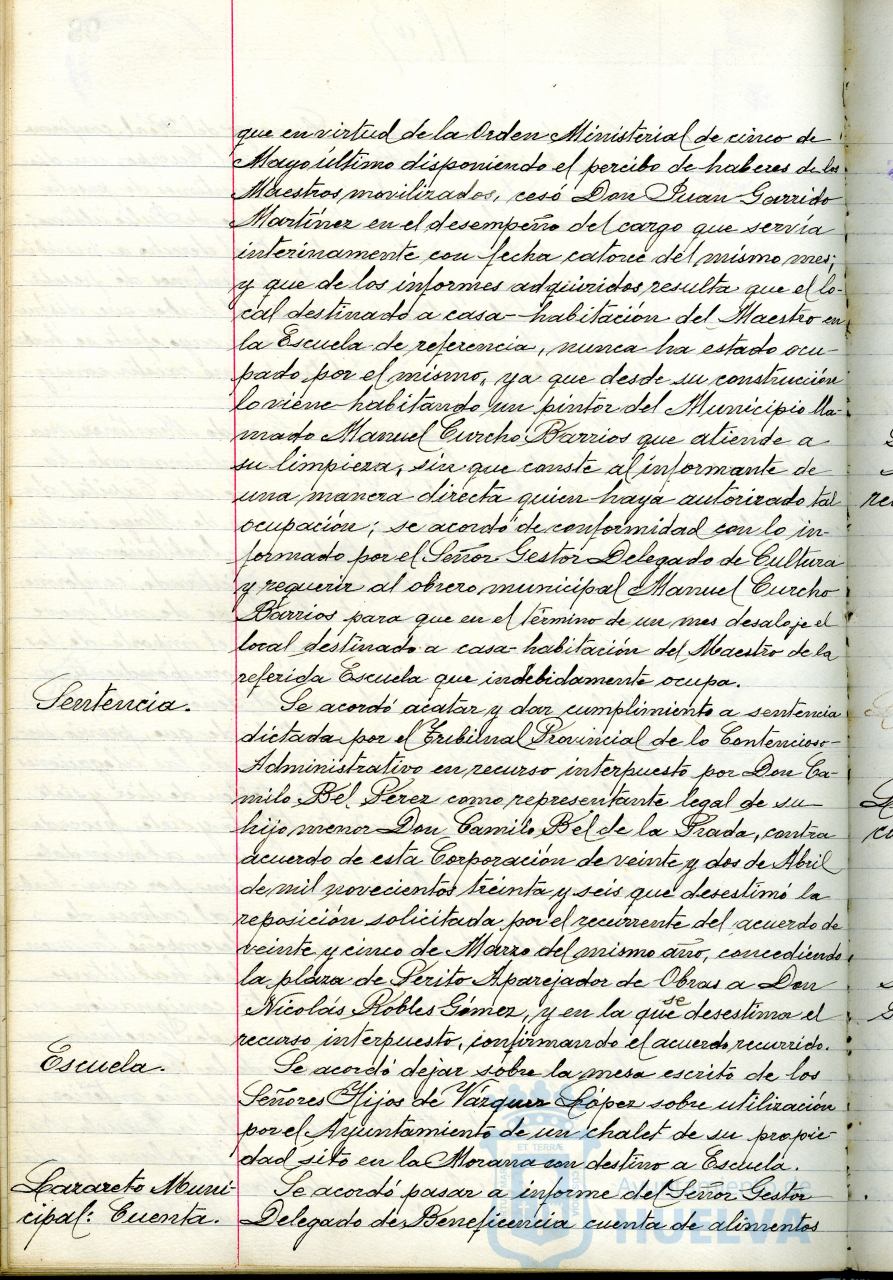 que en virtud de la Orden Ministerial de cinco de
Mayo último disponiendo el percibo de haberes de los
Maestros movilizados, cesó Don Juan Garrido
Martínez en el desempeño del cargo que servía
interinamente con fecha catorce del mismo mes;
y que de los informes adquiridos, resulta que el lo-
cal destinado a casa-habitación del Maestro en
la Escuela de referencia, nunca ha estado ocu-
pado por el mismo, ya que desde su construcción
lo viene habitando un pintor del Municipio lla-
mado Manuel Curcho Barrios que atiende a
su limpieza, sin que conste al informante de
una manera directa quien haya autorizado tal
ocupación; se acordó de conformidad con lo in-
formado por el Señor Gestor Delegado de Cultura
y requerir al obrero municipal Manuel Curcho
Barrios para que en el término de un mes desaloje el
local destinado a casa-habitación del Maestro de la
referida Escuela que indebidamente ocupa.
Sentencia.
Se acordó acatar y dar cumplimiento a sentencia
dictada por el Tribunal Provincial de lo Contencioso-
Administrativo en recurso interpuesto por Don Ca-
milo Bel Pérez como representante legal de su
hijo menor Don Camilo Bel de la Prada, contra
acuerdo de esta Corporación de veinte y dos de Abril
de mil novecientos treinta y seis que desestimó la
reposición solicitada por el recurrente del acuerdo de
veinte y cinco de Marzo del mismo año, concediendo
la plaza de Perito Aparejador de Obras a Don
Nicolás Robles Gómez, y en la que se desestima el
recurso interpuesto, confirmando el acuerdo recurrido.
Escuela.
Se acordó dejar sobre la mesa escrito de los
Señores Hijos de Vázquez López sobre utilización
por el Ayuntamiento de un chalet de su propie-
dad sito en la Morana con destino a Escuela.
Lazareto Muni-
cipal: Cuenta.
Se acordó pasar a informe del Señor Gestor
Delegado de Beneficencia cuenta de alimentos
Ayuntamiento de
HUELVA